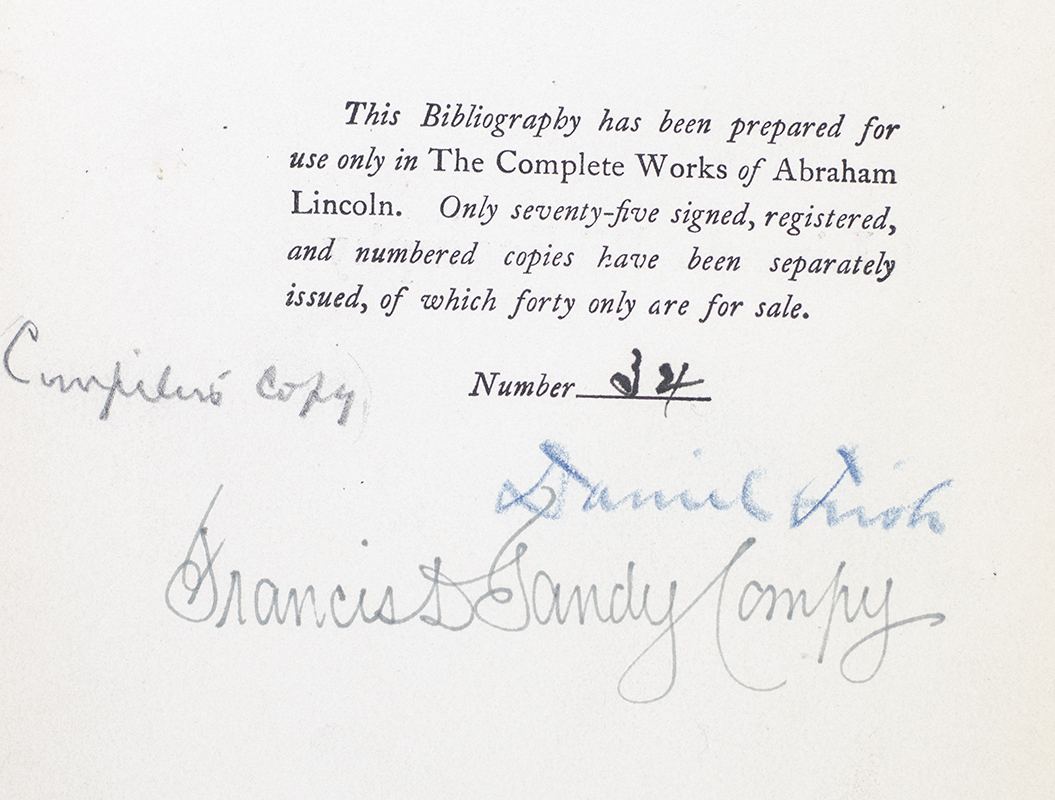 This Bibliography has been prepared for
use only in The Complete Works of Abraham
Lincoln. Only seventy-five signed, registered,
and numbered copies have been separately
issued, of which forty only are for sale.
Compiler's Copy
Number 34
Daniel Fish
Francis D Tandy Compy